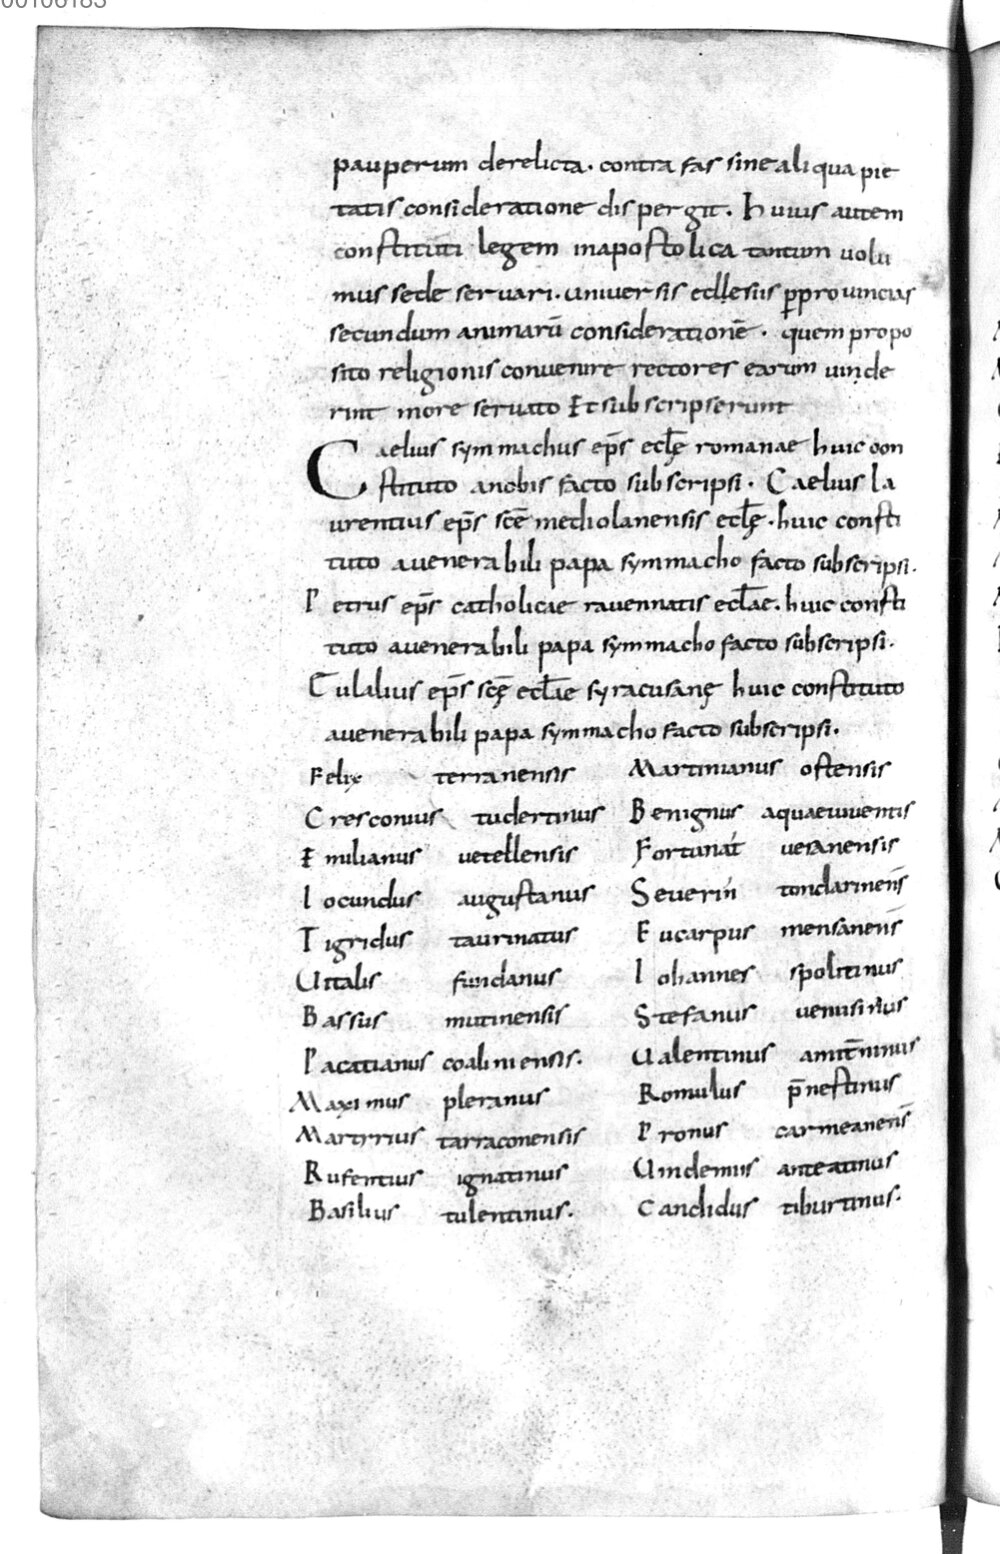 00106183
pauperum derelicta. contra fas sine aliqua pie
tatis consideratione dispergit. Huius autem
constituti legem in apostolica tantum uolu
mus sede seruari. uniuersis ecclesiis p̱prouincias
secundum animarū considerationē. quem propo
sito religionis conuenire rectores earum uiude
rint more seruato Et subscripserunt
Caelius symmachus ep̄s eclę romanae huic con
stituto anobis facto subscripsi. Caelius la
urentius ep̄s scē mediolanensis eclę. huic consti
tuto auenerabili papa symmacho facto subscripsi.
Petrus ep̄s catholicae rauennatis eclae. huic consti
tuto auenerabili papa symmacho facto subscripsi.
Eulalius ep̄s scę̄ eclae syracusanę huic constituto
auenerabili papa symmacho facto subscripsi.
Felix terranensis Martinianus ostensis
Cresconius tudertinus Benignus aquaeuiuentis
Emilianus uetellensis Fortunat uesanensis
Iocundus augustanus Seuerin tondarinens̄
Tigridus taurinatus Eucarpus mensanens̄
Uitalis fundanus Iohannes spolitinus
Bassus mutinensis Stefanus uenusinus
Pacatianus coaliniensis. Ualentinus amitēninus
Maximus pleranus Romulus p̄nestinus
Martyrius tarraconensis Pronus carmeanens̄
Rufentius ignatinus Uindemius anteatinus
Basilius tulentinus. Candidus tiburtinus.